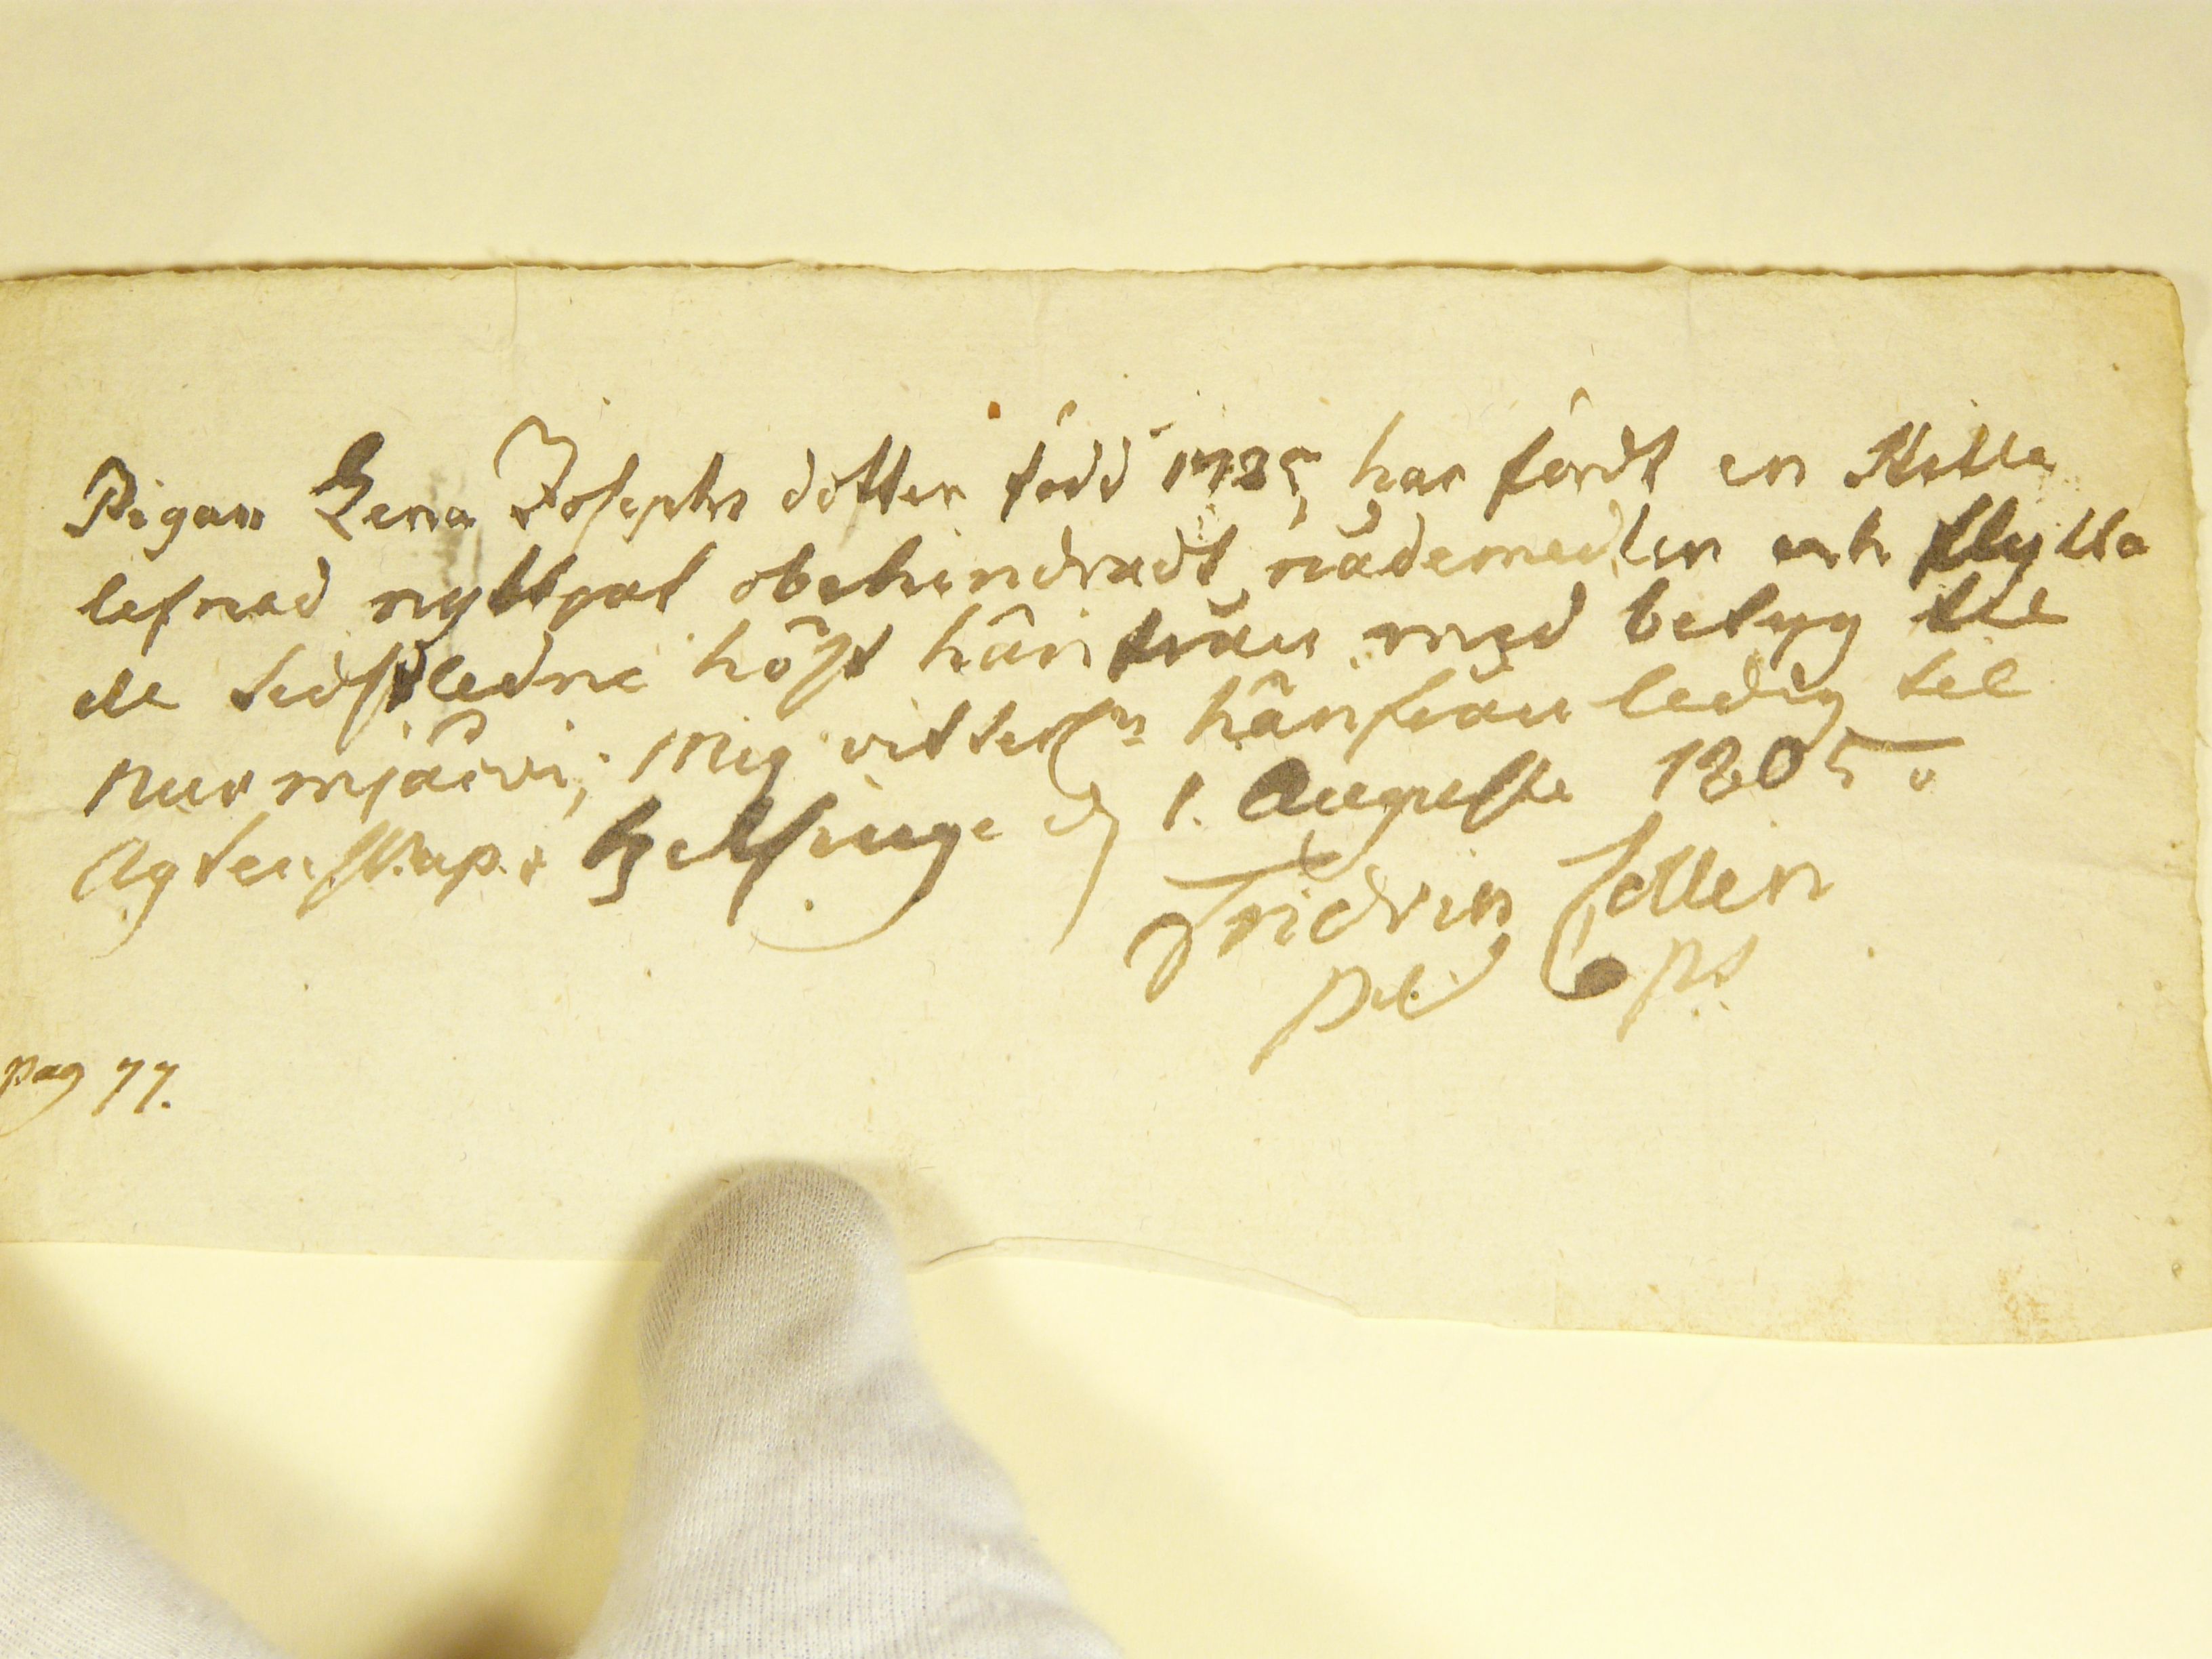 Pigan Lena Josephs dotter född 1785 har fördt en stilla
lefnad nyttjat obehindradt nådemedlen och flytta
de sidstledne höst hän ifrån med betyg til
Nurmjärvi; Mig vitterl:n hänifrån ledig til
Agtenskap. Helsinge d 1. Augusti 1805.
Fridrin Collin
pag 77.